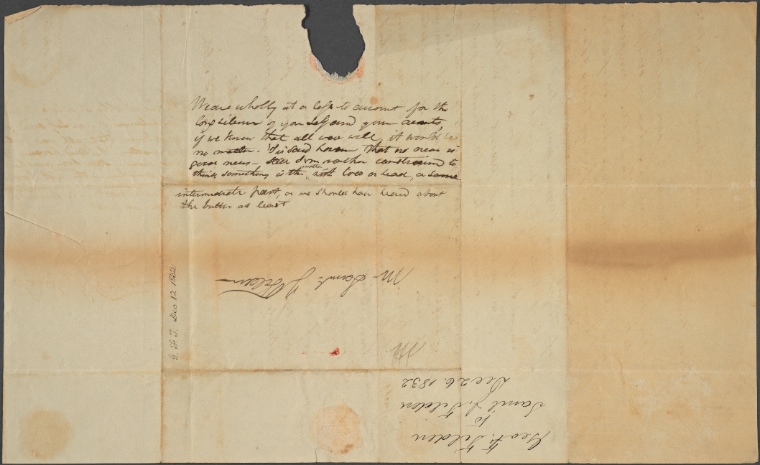 We are wholly at a loss to account for the
long silence of yourself and your
if we knew that all was well, it would be
no matter. 'Tis said however That no news is
good news – I am rather constrained to
think something is the matter with toes or head, or some
intermediate part, or we should have heard about
the butter at least
Mr Saml J Tilden
M
Geo. F. Tilden
to
Saml J. Tilden
Dec 26. 1832
G F T. Dec 12 1832